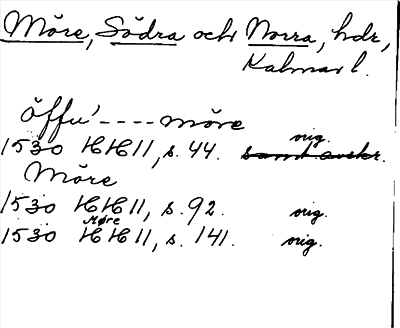 Möre, Södra och Norra, hdr,
Kalmar l.
öffu' ---- möre
1530 HH 11, s. 44. samt avskr. orig.
Möre
1530 HH 11, s. 92. orig.
Møre
1530 HH 11, s. 141. orig.